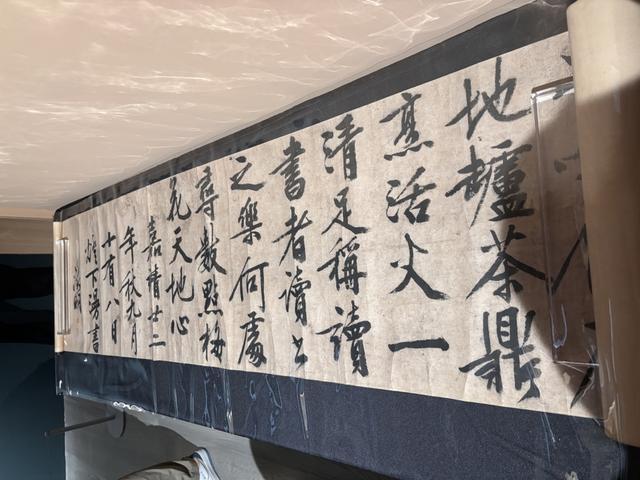 地爐茶鼎
烹活火一
清足稱讀
書者讀书
之樂何處
尋數點梅
花天地心
嘉靖廿二
年秋九月
十有八日
燈下漫書
徵明